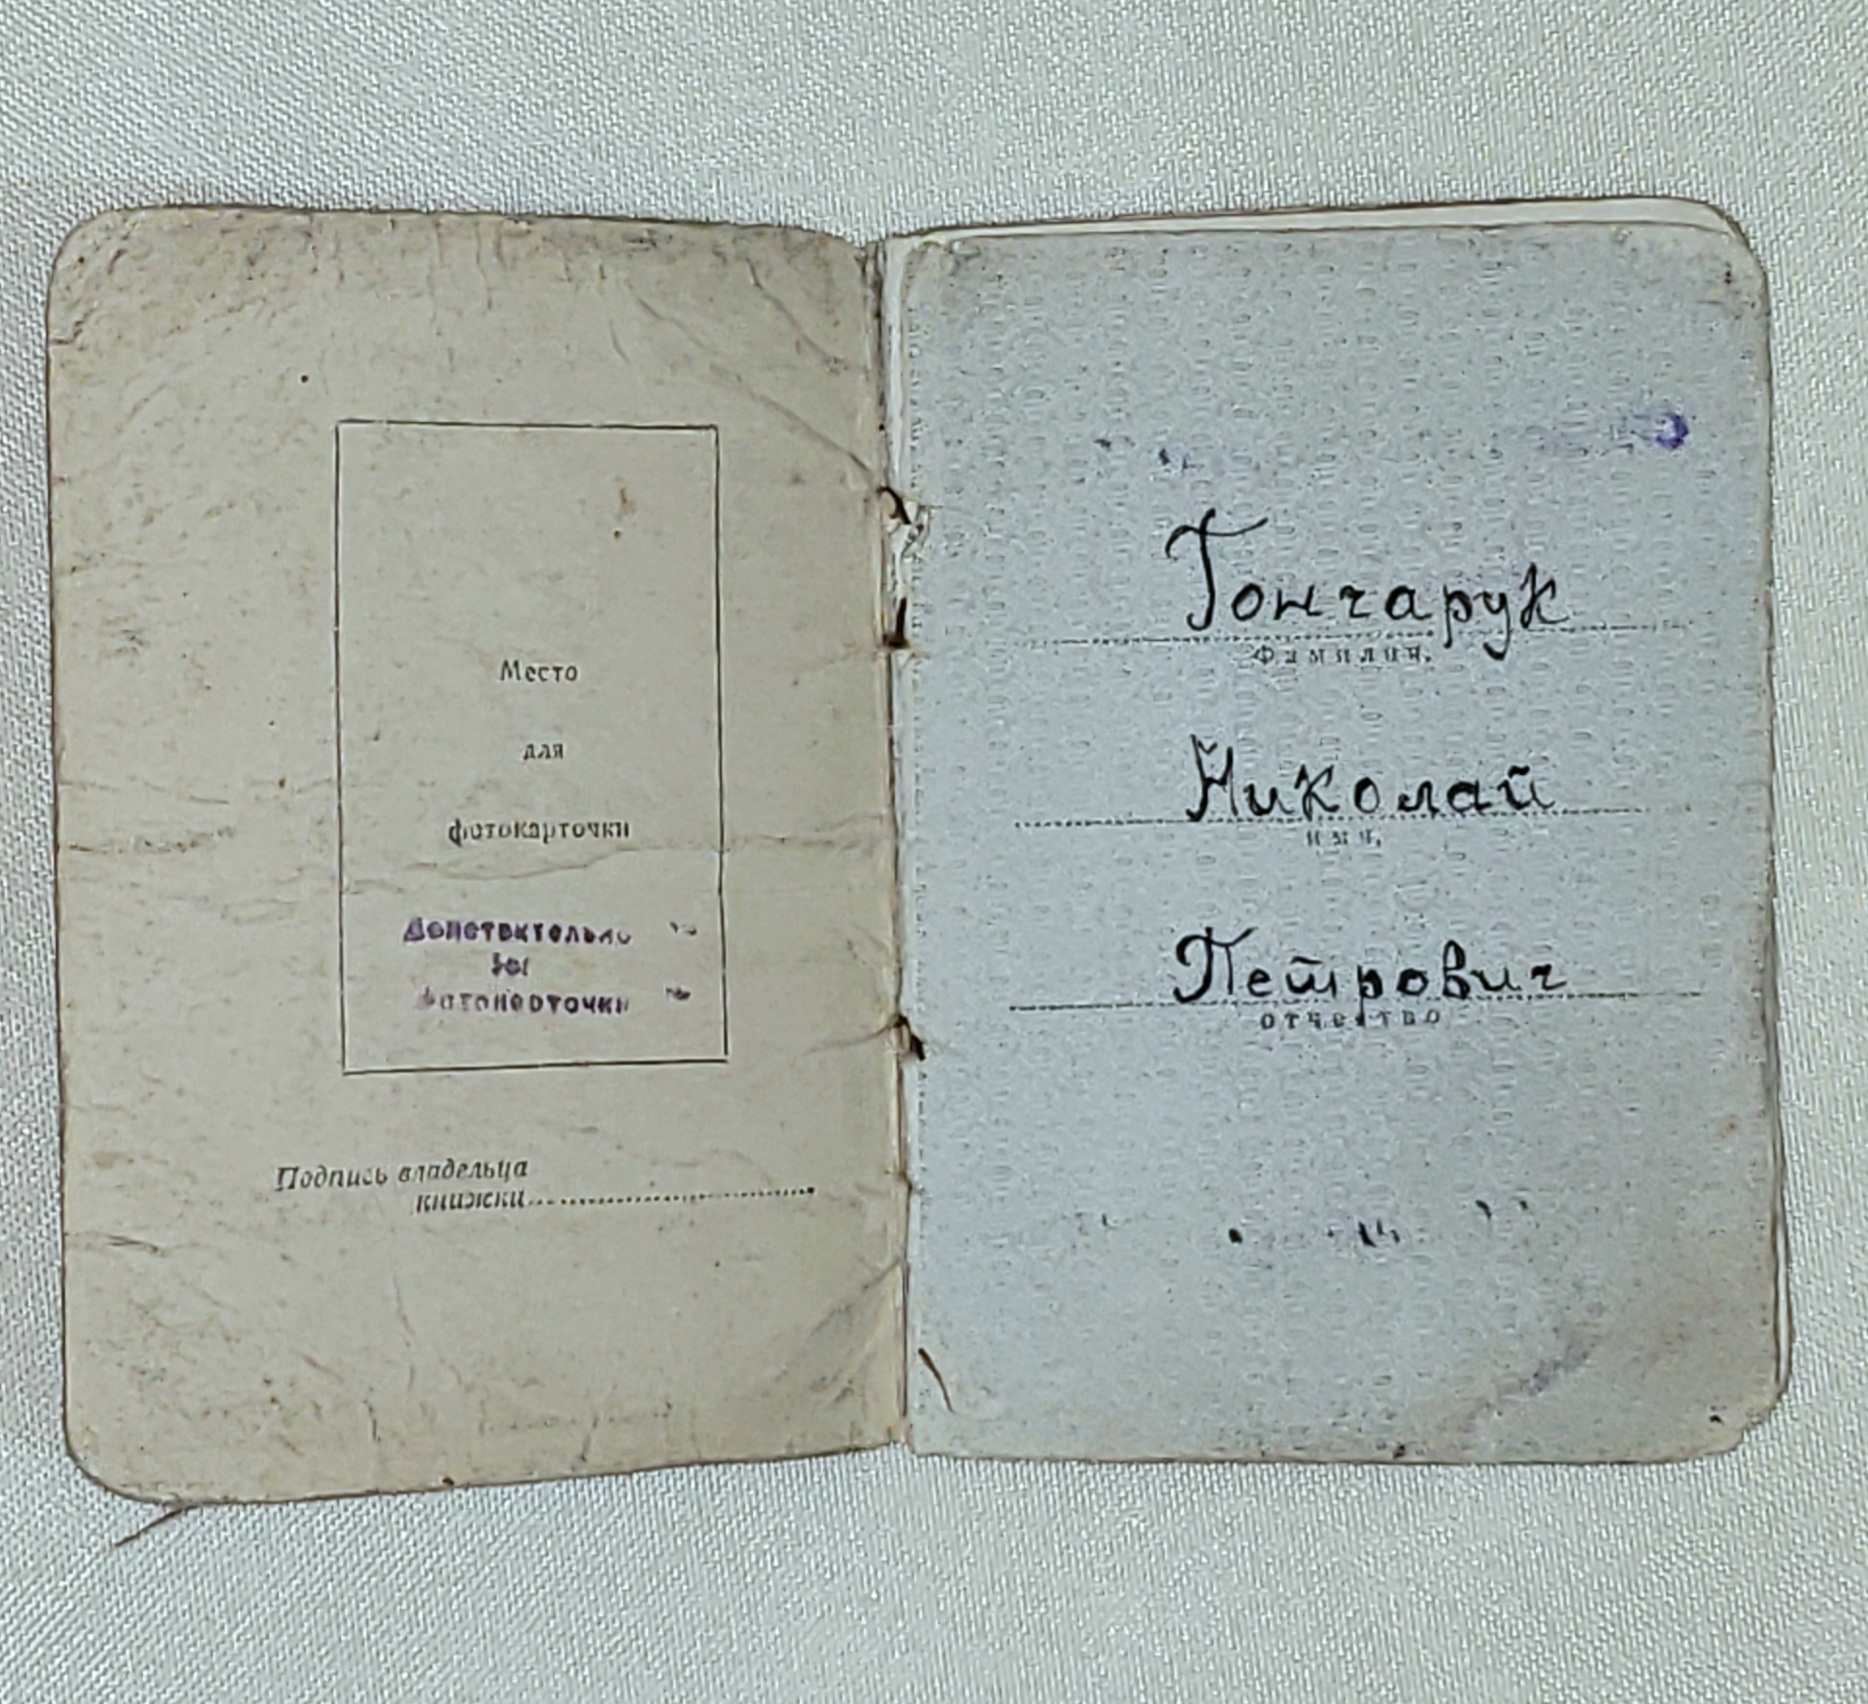 Место
для
фотокарточки
Действительно
без
фотокарточки
Подпись владельца
книжки
Гончарук
Фамилия,
Николай
имя,
Петрович
отчество